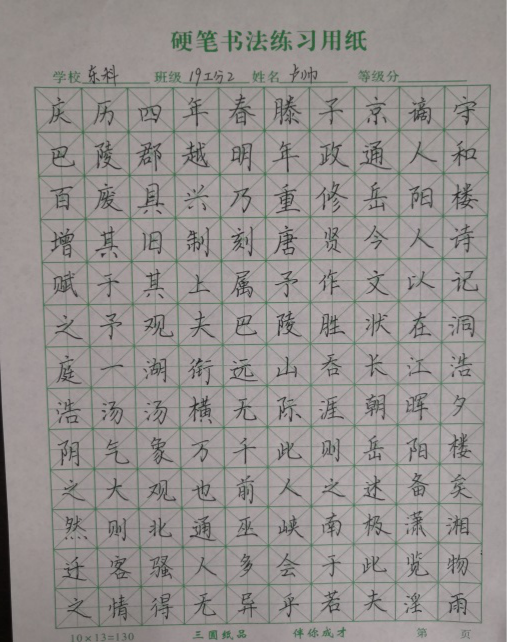 硬笔书法练习用纸
学校 东科 班级 19工分2 姓名 卢帅 等级分
庆历四年春滕子京谪守
巴陵郡越明年政通人和
百废具兴乃重修岳阳楼
增其旧制刻唐贤今人诗
赋于其上属予作文以记
之予观夫巴陵胜状在洞
庭一湖衔远山吞长江浩
浩汤汤横无际涯朝晖夕
阴气象万千此则岳阳楼
之大观也前人之述备矣
然则北通巫峡南极潇湘
迁客骚人多会于此览物
之情得无异乎若夫淫雨
10×13=130 三圆纸品 伴你成才 第 页